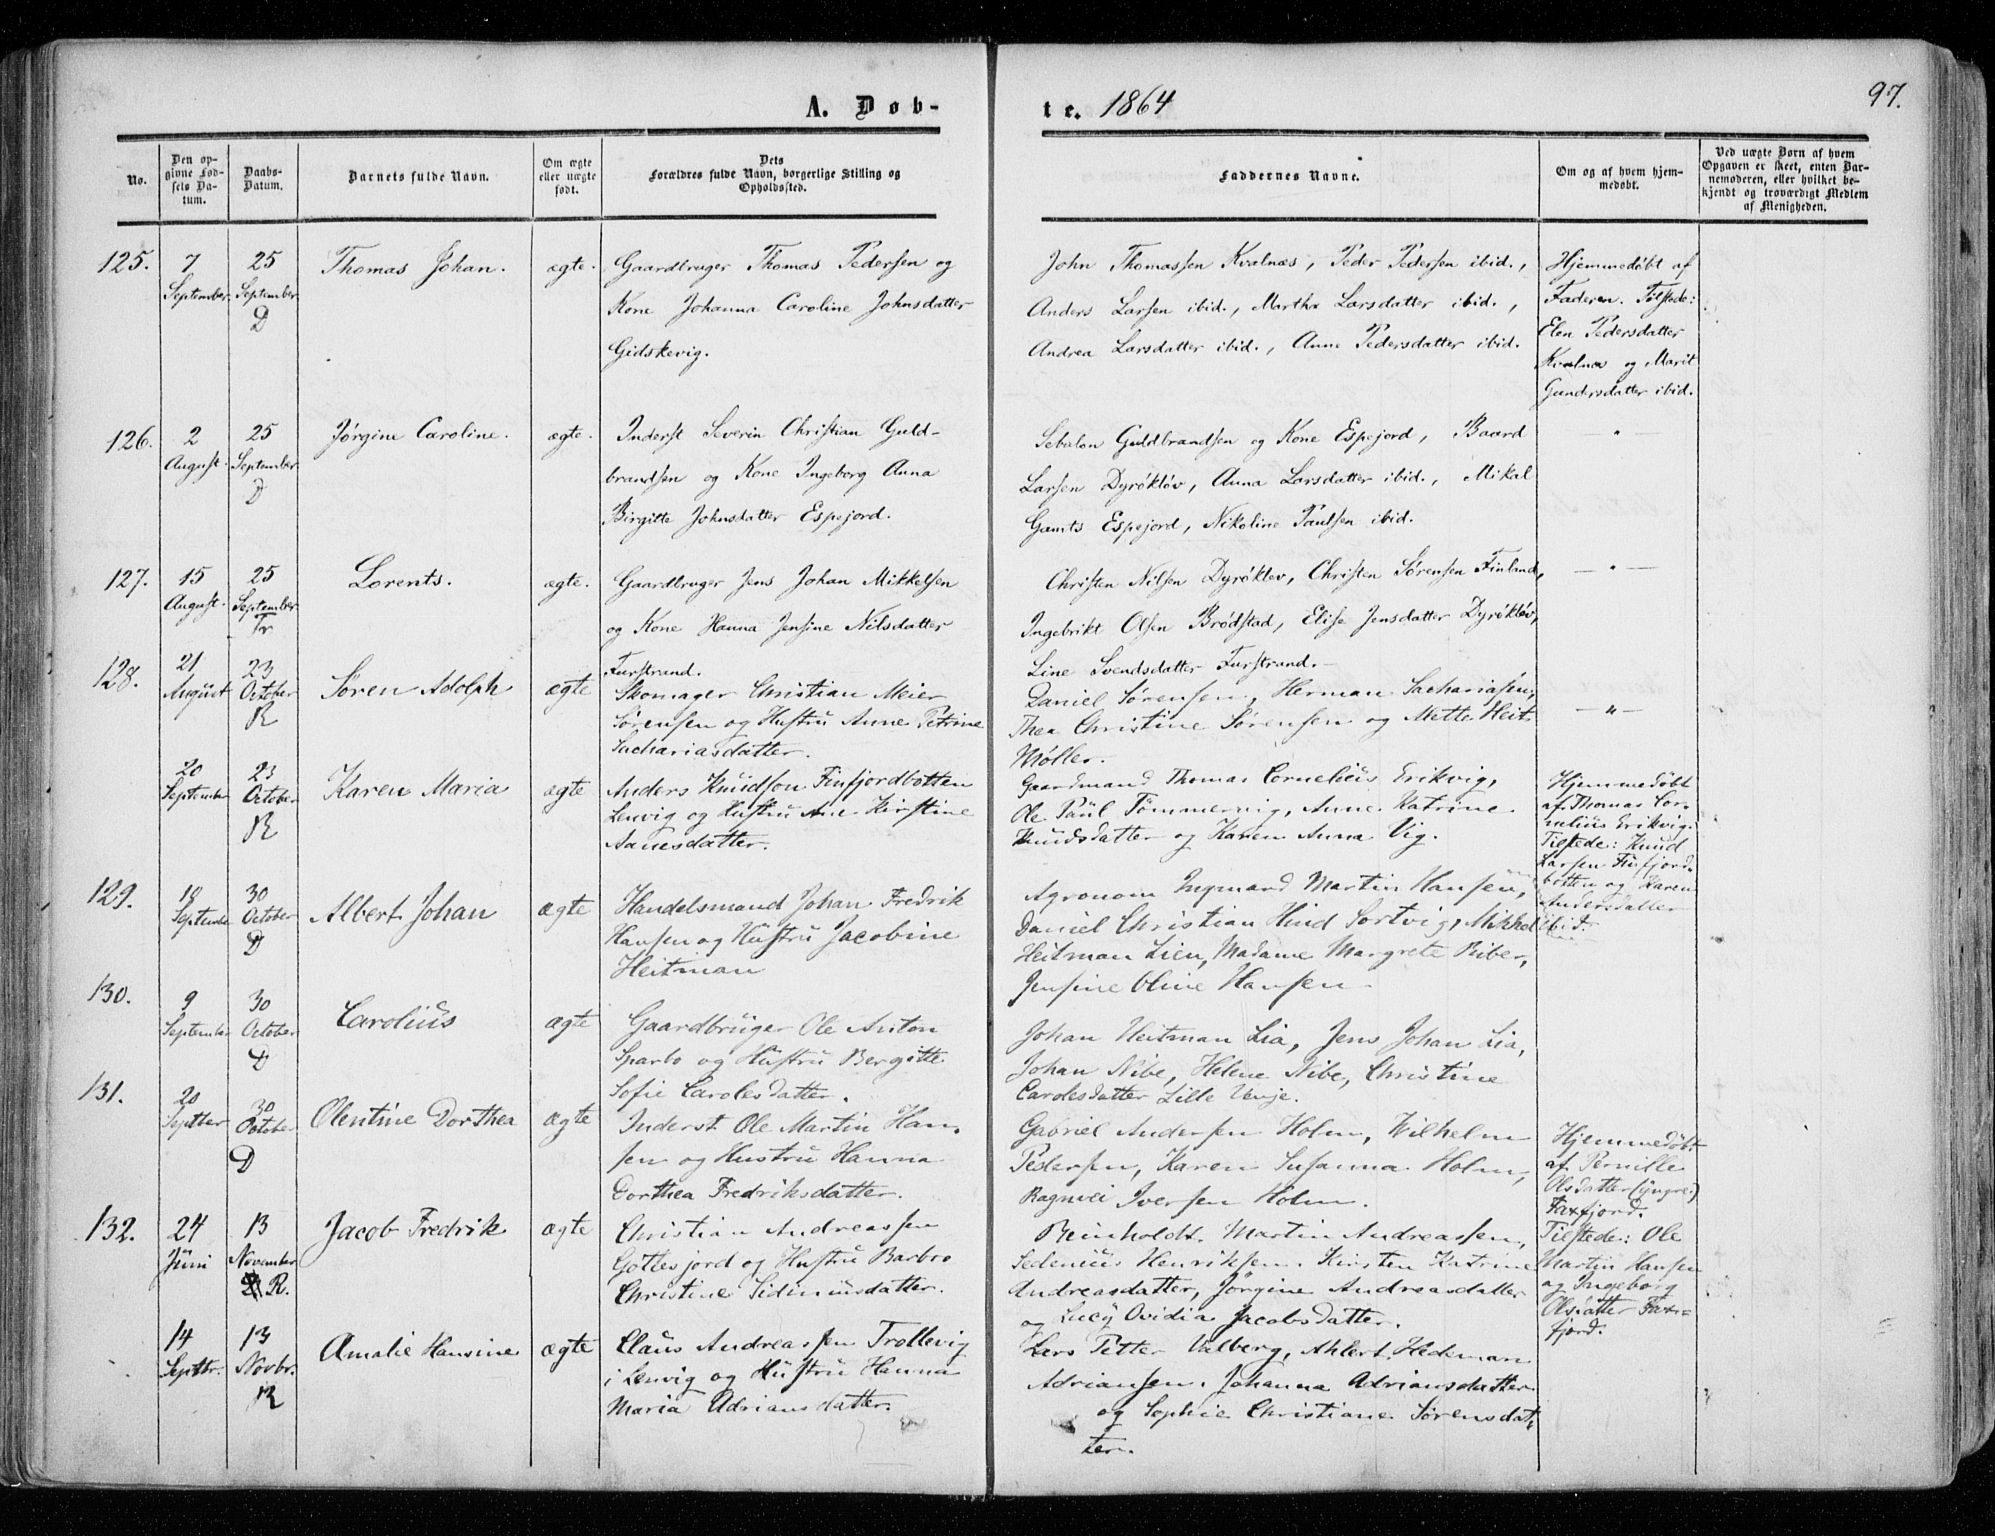 A. Døb-
te. 1864
97.
No.
Den op-
givne Fød-
sels Da-
tum.
Daabs-
Datum.
Barnets fulde Navn.
Om ægte
eller uægte
født.
Dets
Forældres fulde Navn, borgerlige Stilling og
Opholdssted.
Faddernes Navne.
Om og af hvem hjem-
medøbt.
Ved uægte Børn af hvem
Opgaven er skeet, enten Bar-
nemoderen, eller hvilket be-
kjendt og troværdigt Medlem
af Menigheden.
125.
7
September
25
September
D
Thomas Johan.
ægte.
Gaardbruger Thomas Pedersen og
Kone Johanna Caroline Johnsdatter
Gidskevig.
John Thomassen Kvalnæs, Peder Pedersen ibid.,
Anders Larsen ibid., Martha Larsdatter ibid.,
Andrea Larsdatter ibid., Anne Pedersdatter ibid.
Hjemmedøbt af
Faderen. Tilstede:
Elen Pedersdatter
Kvalnæs og Marit
Gundersdatter ibid.
126.
2
August.
25
September
D
Jørgine Caroline.
ægte.
Inderst Severin Christian Guld-
brandsen og Kone Ingeborg Anna
Birgitte Johnsdatter Espejord.
Guldbrandsen og Kone Espejord, Baard
Larsen Dyrøkløv, Anna Larsdatter ibid., Mikal
Espejord, Nikoline Paulsen ibid.
— " —
127.
15
August.
25
September
Tr
Lorents.
ægte.
Gaardbruger Jens Johan Mikkelsen
og Kone Hanna Jensine Nilsdatter
Furstrand.
Christen Nilsen Dyrøkløv, Christen Sørensen Finland,
Ingebrikt Olsen Brødstad, Elise Jensdatter Dyrøkløv,
Line Svendsdatter Furstrand.
— " —
128.
21
August
23
October
R
Søren Adolph
ægte
Skomager Christian Meier
Sørensen og Hustru Anne Petrine
Sachariasdatter.
Daniel Sørensen, Herman Sachariasen,
Thea Christine Sørensen og Mette Heit.
Møller.
— " —
20
September
23
October
R
Karen Maria
ægte
Anders Knudson Finfjordbotten
Lenvig og Hustru Ane Kirstine
Aanesdatter.
Gaardmand Thomas Cornelius Erikvig,
Ole Paul Tømmervig, Anne Katrine
Knudsdatter og Karen Anna Vig.
Hjemmedøbt
af Thomas Cor-
nelius Erikvig.
Tilstede: Knud
Larsen Finfjord-
botten og Karen
Andersdatter
ibid.
129.
18
September
30
October
D
Albert Johan
ægte
Handelsmand Johan Fredrik
Hansen og Hustru Jacobine
Heitman
Agronom Ingmard Martin Hansen,
Daniel Christian Hind Sortvig, Mikkel
Heitman Lien, Madame Margrete Riber,
Jensine Oline Hansen
130.
9
September
30
October
D
Carolius
ægte
Gaardbruger Ole Anton
Sparbo og Hustru Bergitte
Sofie Carolesdatter.
Johan Heitman Lia, Jens Johan Lia,
Johan Nibe, Helene Nibe, Christine
Carolesdatter Lille Venje.
131.
20
Septber
30
October
D
Olentine Dorthea
ægte
Inderst Ole Martin Han-
sen og Hustru Hanna
Dorthea Fredriksdatter.
Gabriel Andersen Holm, Wilhelm
Pedersen, Karen Susanna Holm,
Ragnvei Iversen Holm.
Hjemmedøbt
af Pernille
Olsdatter (yngre)
Faxfjord.
Tilstede: Ole
Martin Hansen
og Ingeborg
Olsdatter Fax-
fjord.
132.
24
Juni
13
November
R.
Jacob Fredrik
ægte
Christian Andreassen
Gottesjord og Hustru Barbro
Christine Sidiniusdatter.
Reinholdt Martin Andreassen,
Sedenius Henriksen. Kirsten Katrine
Andreasdatter, Jørgine Andreasdatter
og Lucy Ovidia Jacobsdatter.
14
Septbr.
13
Novbr.
R
Amalie Hansine
ægte
Claus Andreassen Trollevig
i Lenvig og Hustru Hanna
Maria Adriansdatter.
Lars Petter Valberg, Ahlert Hedeman
Adriansen, Johanna Adriansdatter
og Sophie Christiane Sørensdat-
ter.